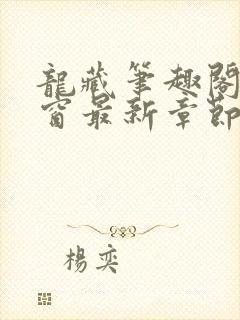 龍藏筆趣閣
窗最新章節
楊奕